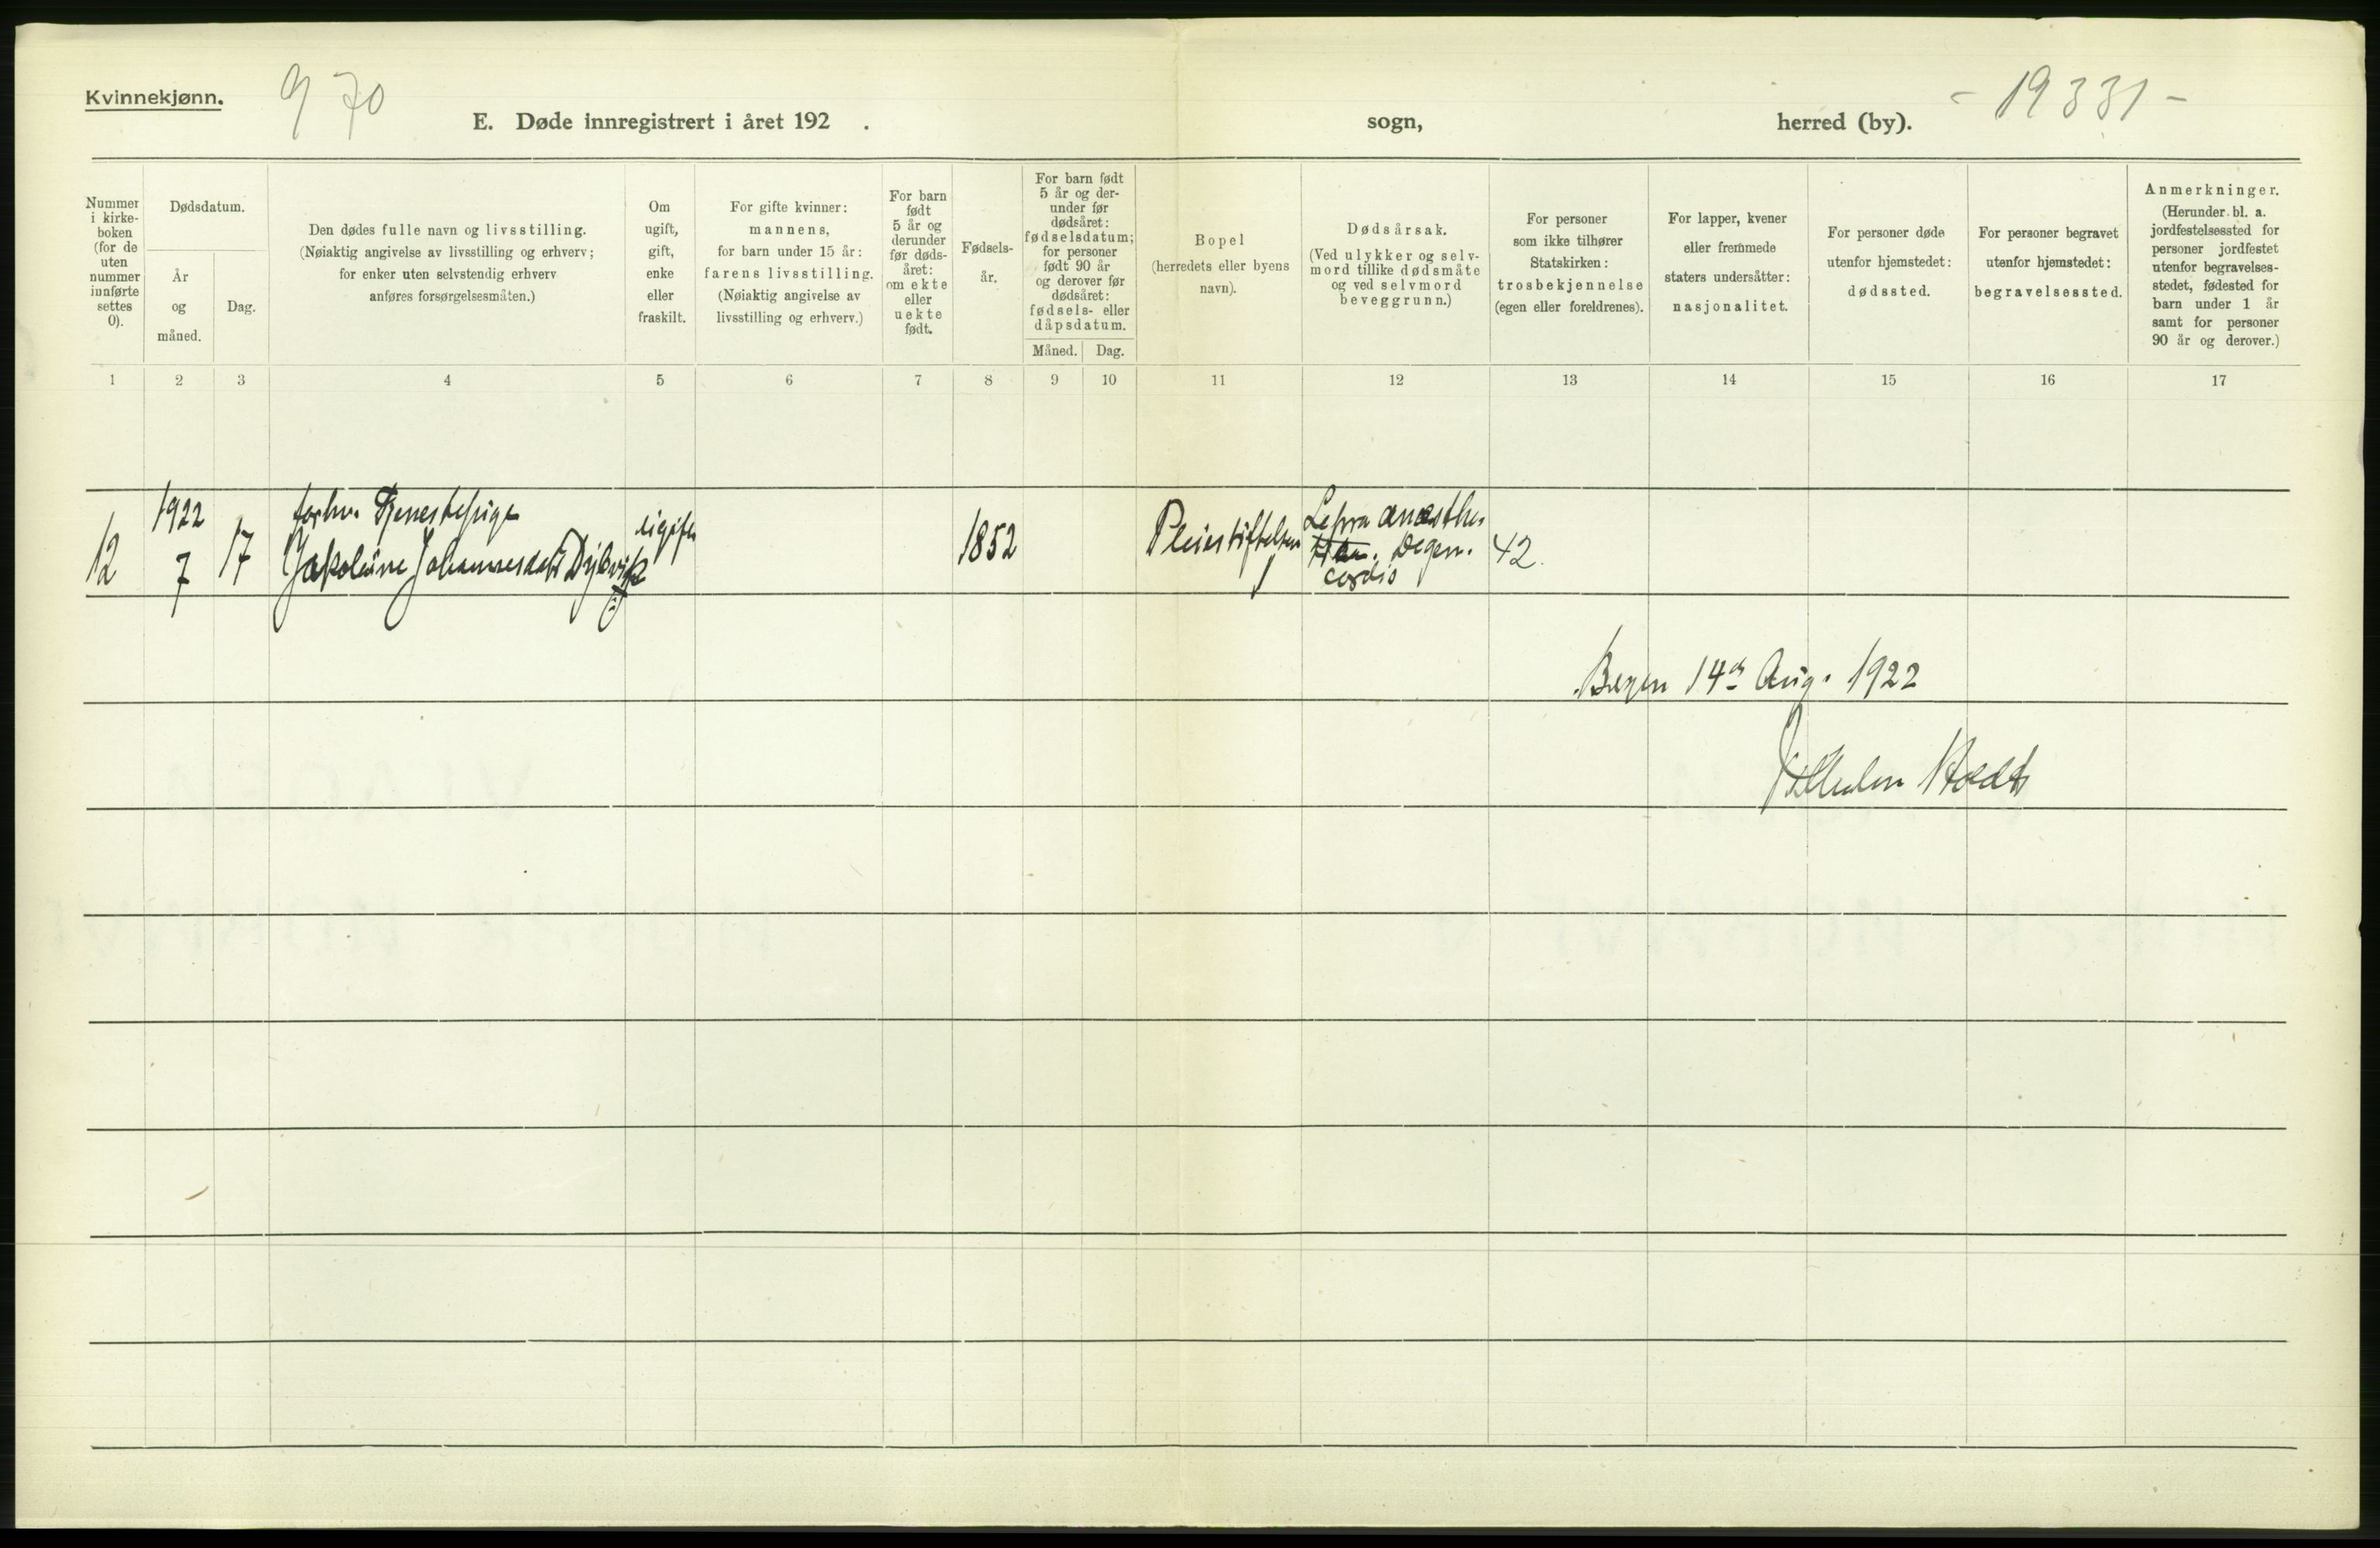 Kvinnekjønn.
9 70
E. Døde innregistrert i året 192 .
sogn,
herred (by).
- 19331 -
Nummer
i kirke-
boken
(for de
uten
nummer
innførte
settes
0).
Dødsdatum.
År
og
måned.
Dag.
Den dødes fulle navn og livsstilling.
(Nøiaktig angivelse av livsstilling og erhverv;
for enker uten selvstendig erhverv
anføres forsørgelsesmåten.)
Om
ugift,
gift,
enke
eller
fraskilt.
For gifte kvinner:
mannens,
for barn under 15 år:
farens livsstilling.
(Nøiaktig angivelse av
livsstilling og erhverv.)
For barn
født
5 år og
derunder
før døds-
året:
om ekte
eller
uekte
født.
Fødsels-
år.
For barn født
5 år og der-
under før
dødsåret:
fødselsdatum;
for personer
født 90 år
og derover før
dødsåret:
fødsels- eller
dåpsdatum.
Måned.
Dag.
Bopel
(herredets eller byens
navn).
Dødsårsak.
(Ved ulykker og selv-
mord tillike dødsmåte
og ved selvmord
beveggrunn.)
For personer
som ikke tilhører
Statskirken:
trosbekjennelse
(egen eller foreldrenes).
For lapper, kvener
eller fremmede
staters undersåtter:
nasjonalitet.
For personer døde
utenfor hjemstedet:
dødssted.
For personer begravet
utenfor hjemstedet:
begravelsessted.
Anmerkninger.
(Herunder bl. a.
jordfestelsessted for
personer jordfestet
utenfor begravelses-
stedet, fødested for
barn under 1 år
samt for personer
90 år og derover.)
1 2 3 4 5 6 7 8 9 10 11 12 13 14 15 16 17
12
1922
7
17
forhv. Tjenestepige
Jakobine Johannesdatt Dybvik
ugift
1852
Pleiestiftelsen
Lepra anæsthes
Degen.
cordis
42.
Bergen 14de Aug. 1922
Vilhelm Holdt